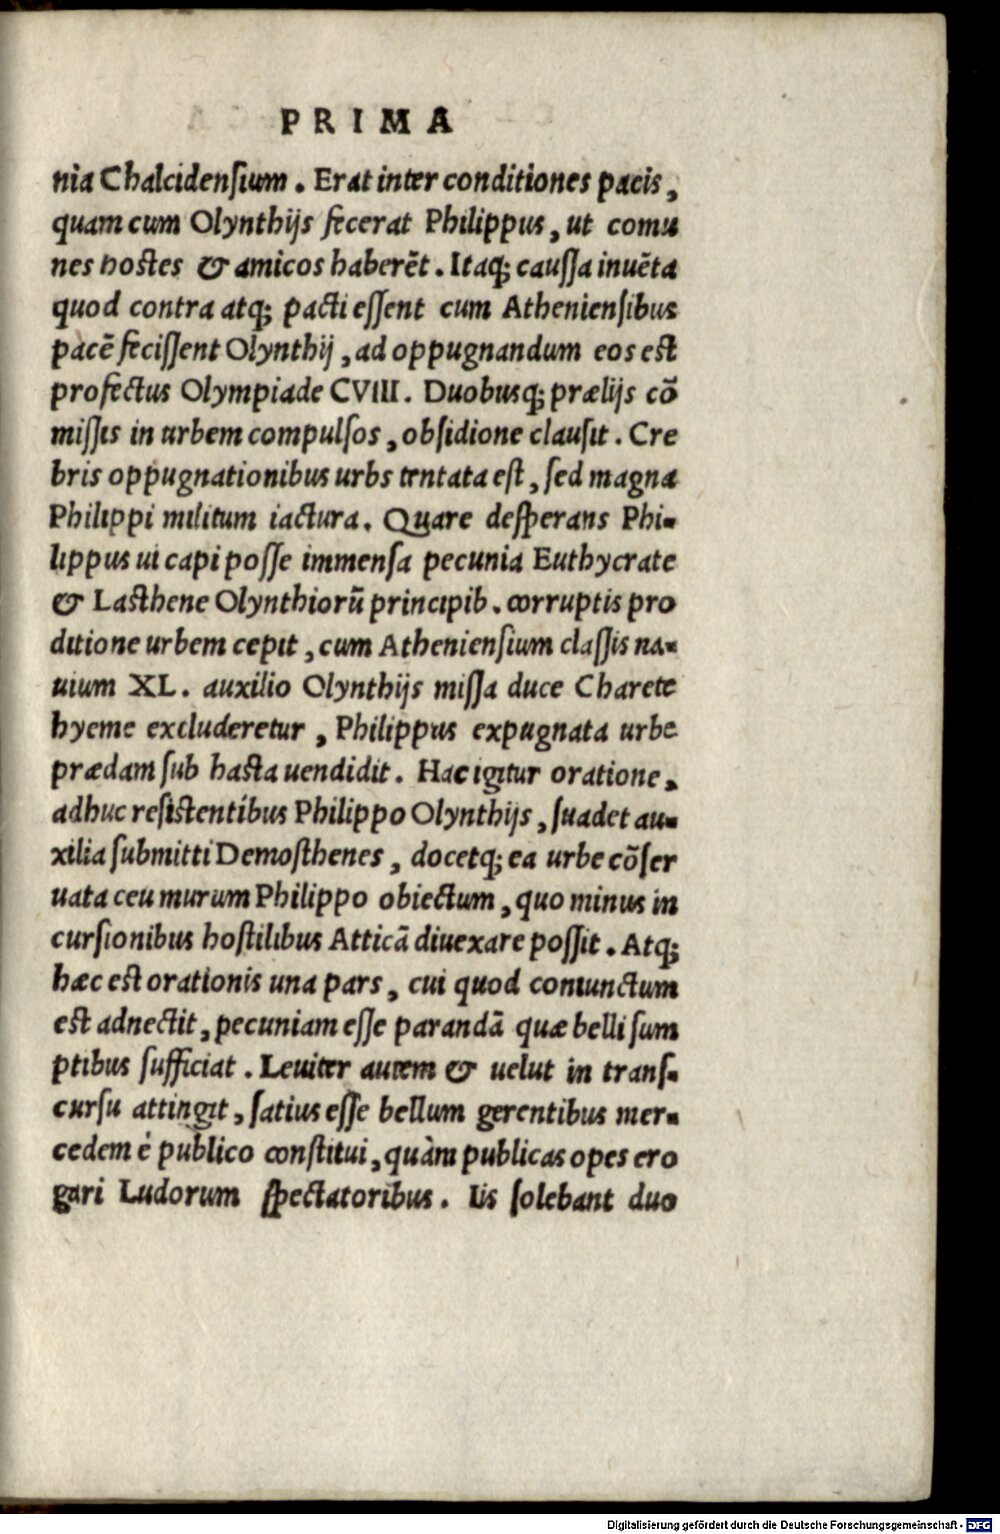 PRIMA
nia Chalcidenſium. Erat inter conditiones pacis,
quam cum Olynthijs fecerat Philippus, ut comu
nes hostes & amicos haberēt. Itaq; cauſſa inuēta
quod contra atq; pacti eſſent cum Athenienſibus
pacē feciſſent Olynthij, ad oppugnandum eos est
profectus Olympiade CVIII. Duobusq; prælijs cō
miſſis in urbem compulſos, obſidione clauſit. Cre
bris oppugnationibus urbs tentata eſt, ſed magna
Philippi militum iactura. Quare deſperans Phi-
lippus ui capi poſſe immenſa pecunia Euthycrate
& Lasthene Olynthiorū principib. corruptis pro
ditione urbem cepit, cum Athenienſium claſſis na-
uium XL. auxilio Olynthijs miſſa duce Charete
hyeme excluderetur, Philippus expugnata urbe
prædam ſub hasta uendidit. Hac igitur oratione,
adhuc reſistentibus Philippo Olynthijs, ſuadet au-
xilia ſubmitti Demoſthenes, docetq; ea urbe cōſer
uata ceu murum Philippo obiectum, quo minus in
curſionibus hoſtilibus Atticā diuexare poſſit. Atq;
hæc est orationis una pars, cui quod coniunctum
est adnectit, pecuniam eſſe parandā quæ belli ſum
ptibus ſufficiat. Leuiter autem & uelut in tranſ-
curſu attingit, ſatius eſſe bellum gerentibus mer-
cedem é publico conſtitui, quàm publicas opes ero
gari Ludorum ſpectatoribus. Iis ſolebant duo
Digitalisierung gefördert durch die Deutsche Forschungsgemeinschaft - DFG